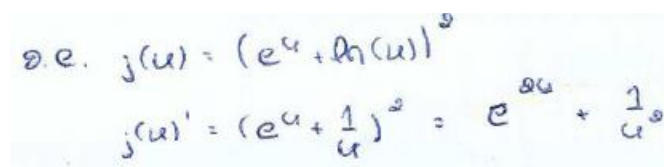 2.e. j(u) = (e^u + ln(u))^2
j(u)' = (e^u + 1/u)^2 = e^{2u} + 1/u^2